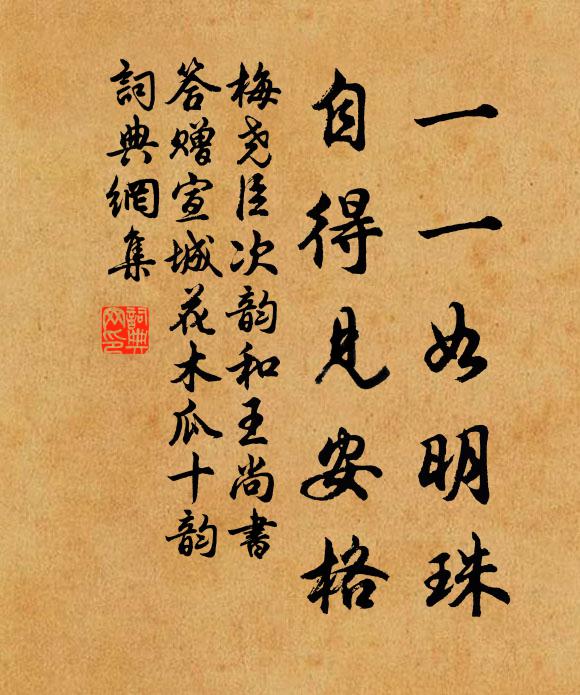 一一如明珠
自得見安格
梅尧臣次韵和王尚書
答赠宣城花木瓜十韵
詞典網集
詞典
网印